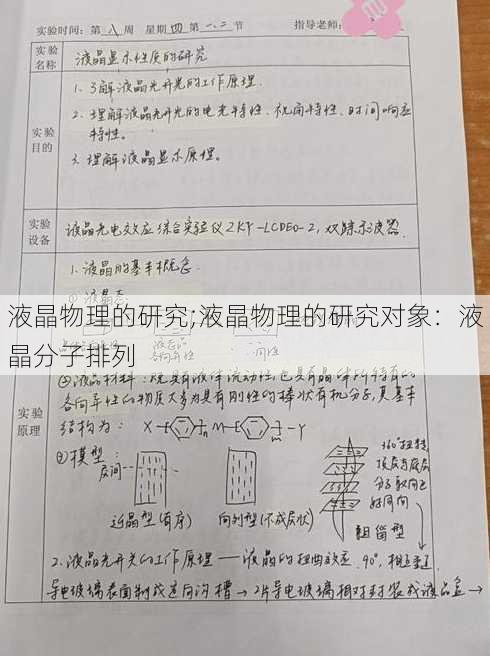 实验时间：第 八 周 星期 四 第 一、二 节 指导老师：
实验名称
液晶显示性质的研究
实验目的
1. 了解液晶光开关的工作原理.
2. 理解液晶光开光的电光特性、视角特性、时间响应
特性。
3. 理解液晶显示原理。
实验设备
液晶光电效应综合实验仪ZKY-LCDEO-2，双踪示波器.
实验原理
1. 液晶的基本概念.
液晶物理的研究;液晶物理的研究对象：液
晶分子排列
②液晶材料：既具有液体流动性，也具有晶体所特有的
各向异性的物质大多为具有刚性的棒状有机分子，其基本
结构为： X M Y
模型：
层间
近晶型(有序) 向列型(不成层状) 胆甾型
360°扭转
2. 液晶光开关的工作原理 — 液晶的扭曲效应 90°,
导电玻璃表面制成定向沟槽 → 2片导电玻璃相对封装成液晶盒 →